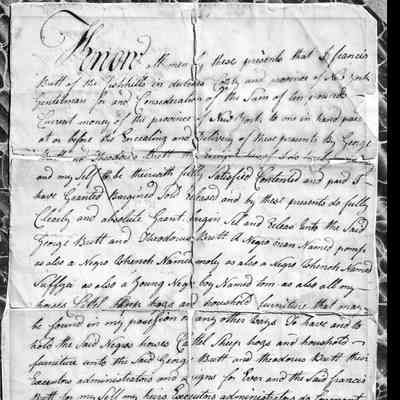 Know All men by these presents that I francis
Brett of the fishkills in dutches County and province of New York
Gentelman for and Consideration of the Sum of ten pounds
Current money of the province of New York to me in hand paid
at or before the Ensealing and Delivery of these presents By George
Brett and Theodorus Brett
and my Self to be therewith fully Satisfied Contented and paid I
have Granted Bargined Sold released and by these presents do fully
Clearly and absolute Grant Bargin Sell and release unto the Said
George Brett and Theodorus Brett A Negro man Named pomp
as also a Negro Whench Named moly as also a Negro Whench Named
as also a Young Negro boy Named tom as also all my
horses Cattel Sheep hogs and houshold furniture that may
be found in my possesion or any other Ways To have and to
hold the Said Negros horses Cattel Sheep hogs and houshold
furniture unto the Said George Brett and theodorus Brett their
Executors administrators and asigns for Ever and the Said francis
Brett for my Self my heirs Executors administrators do